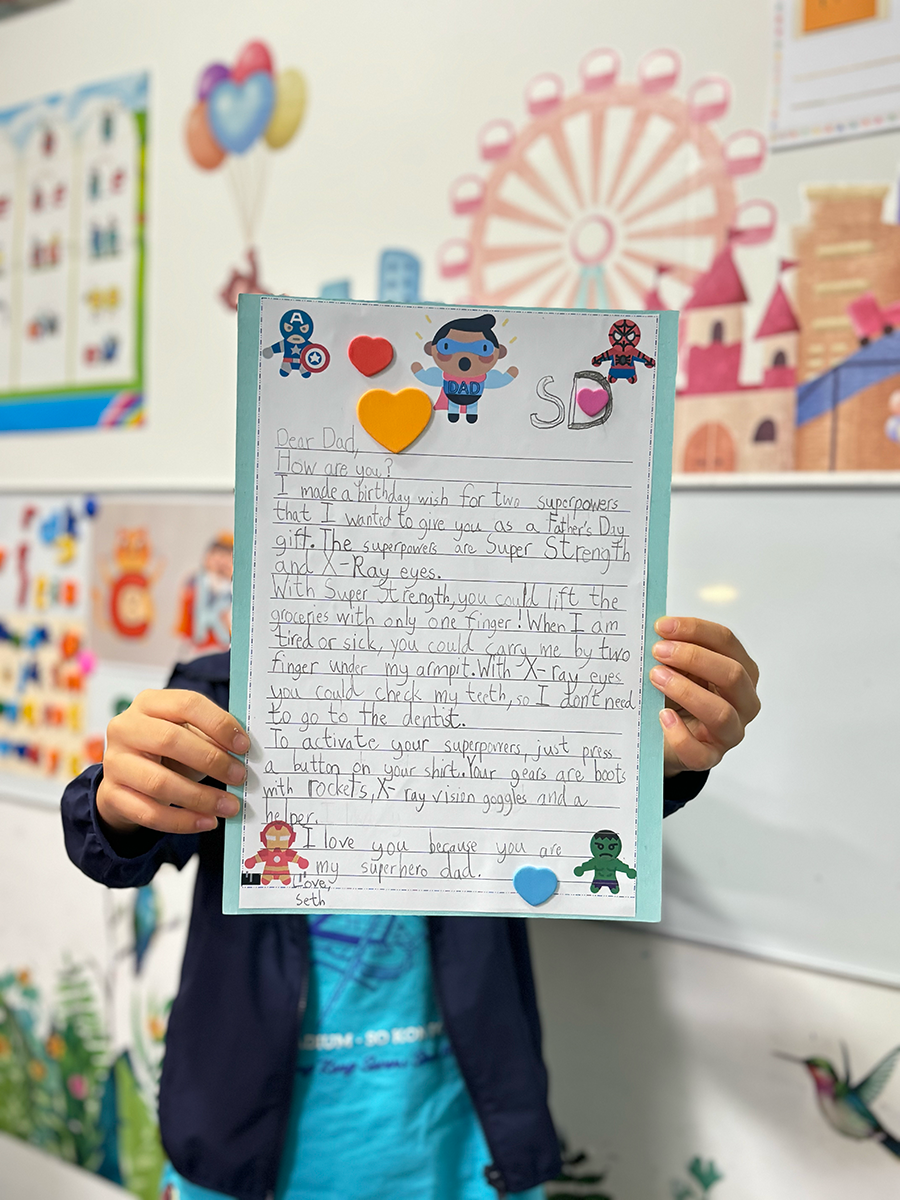 DAD
SD
Dear Dad,
How are you?
I made a birthday wish for two superpowers
that I wanted to give you as a Father's Day
gift. The superpowers are Super Strength
and X-Ray eyes.
With Super Strength, you could lift the
groceries with only one finger! When I am
tired or sick, you could carry me by two
finger under my armpit. With X-ray eyes
you could check my teeth, so I don't need
to go to the dentist.
To activate your superpowers, just press
a button on your shirt. Your gears are boots
with rockets, X-ray vision goggles and a
helper.
I love you because you are
my superhero dad.
Love,
Seth